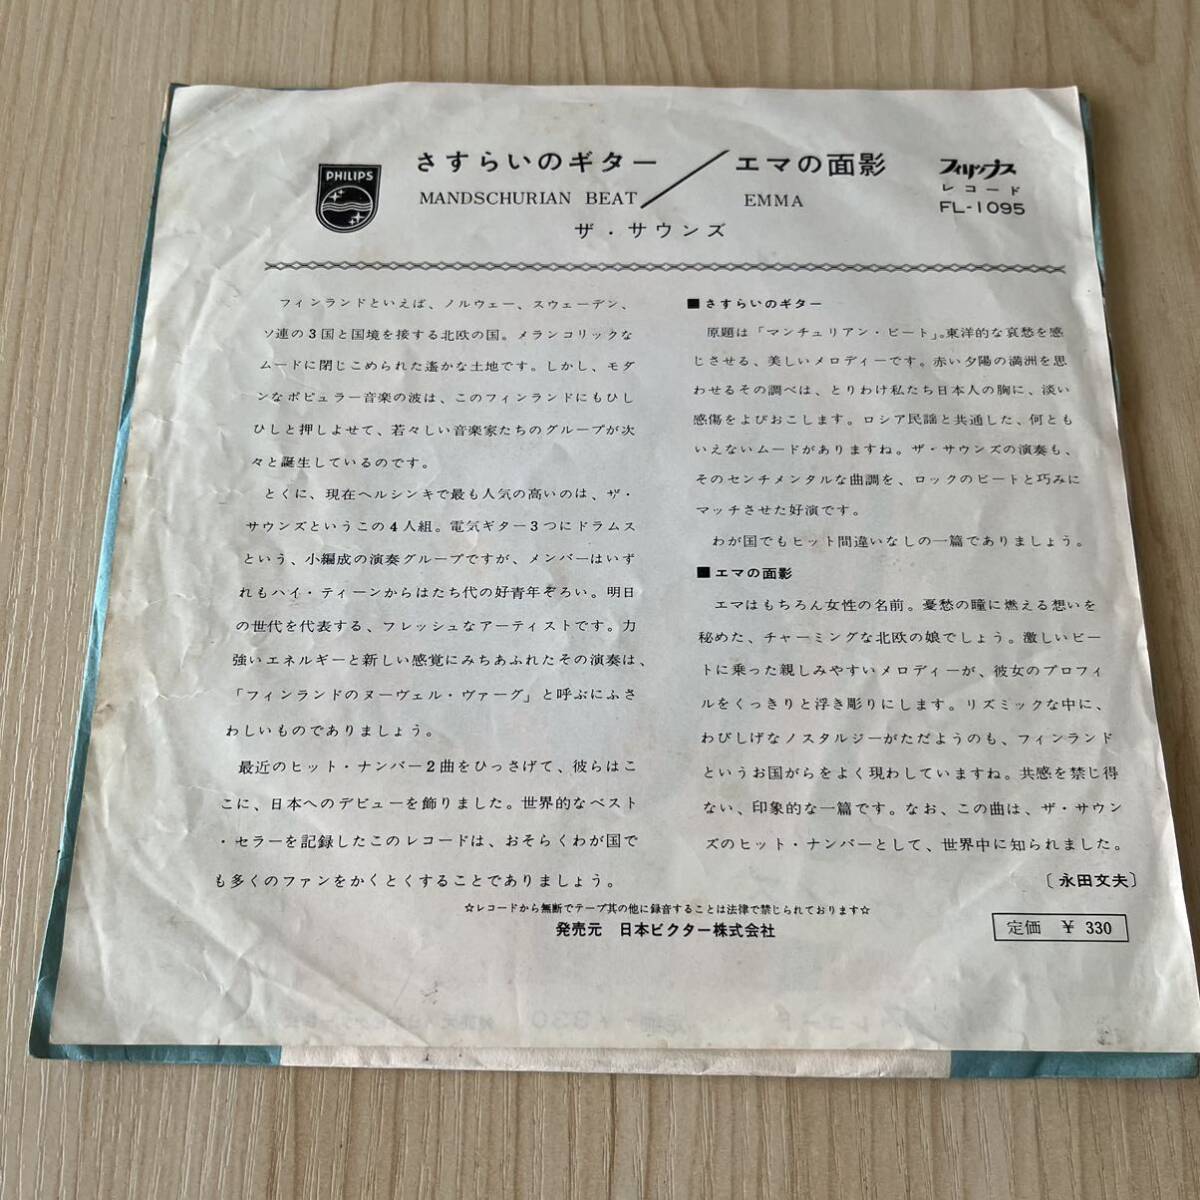 PHILIPS
さすらいのギター／エマの面影
MANDSCHURIAN BEAT EMMA
ザ・サウンズ
フィリップス
レコード
FL-1095
フィンランドといえば、ノルウェー、スウェーデン、
ソ連の3国と国境を接する北欧の国。メランコリックな
ムードに閉じこめられた遙かな土地です。しかし、モダ
ンなポピュラー音楽の波は、このフィンランドにもひし
ひしと押しよせて、若々しい音楽家たちのグループが次
々と誕生しているのです。
とくに、現在ヘルシンキで最も人気の高いのは、ザ・
サウンズというこの4人組。電気ギター3つにドラムス
という、小編成の演奏グループですが、メンバーはいず
れもハイ・ティーンからはたち代の好青年ぞろい。明日
の世代を代表する、フレッシュなアーティストです。力
強いエネルギーと新しい感覚にみちあふれたその演奏は、
「フィンランドのヌーヴェル・ヴァーグ」と呼ぶにふさ
わしいものでありましょう。
最近のヒット・ナンバー2曲をひっさげて、彼らはこ
こに、日本へのデビューを飾りました。世界的なベスト
・セラーを記録したこのレコードは、おそらくわが国で
も多くのファンをかくとくすることでありましょう。
■さすらいのギター
原題は「マンチュリアン・ビート」。東洋的な哀愁を感
じさせる、美しいメロディーです。赤い夕陽の満洲を思
わせるその調べは、とりわけ私たち日本人の胸に、淡い
感傷をよびおこします。ロシア民謡と共通した、何とも
いえないムードがありますね。ザ・サウンズの演奏も、
そのセンチメンタルな曲調を、ロックのビートと巧みに
マッチさせた好演です。
わが国でもヒット間違いなしの一篇でありましょう。
■エマの面影
エマはもちろん女性の名前。憂愁の瞳に燃える想いを
秘めた、チャーミングな北欧の娘でしょう。激しいビー
トに乗った親しみやすいメロディーが、彼女のプロフィ
ルをくっきりと浮き彫りにします。リズミックな中に、
わびしげなノスタルジーがただようのも、フィンランド
というお国がらをよく現わしていますね。共感を禁じ得
ない、印象的な一篇です。なお、この曲は、ザ・サウン
ズのヒット・ナンバーとして、世界中に知られました。
〔永田文夫〕
☆レコードから無断でテープ其の他に録音することは法律で禁じられております☆
発売元 日本ビクター株式会社
定価 ¥ 330